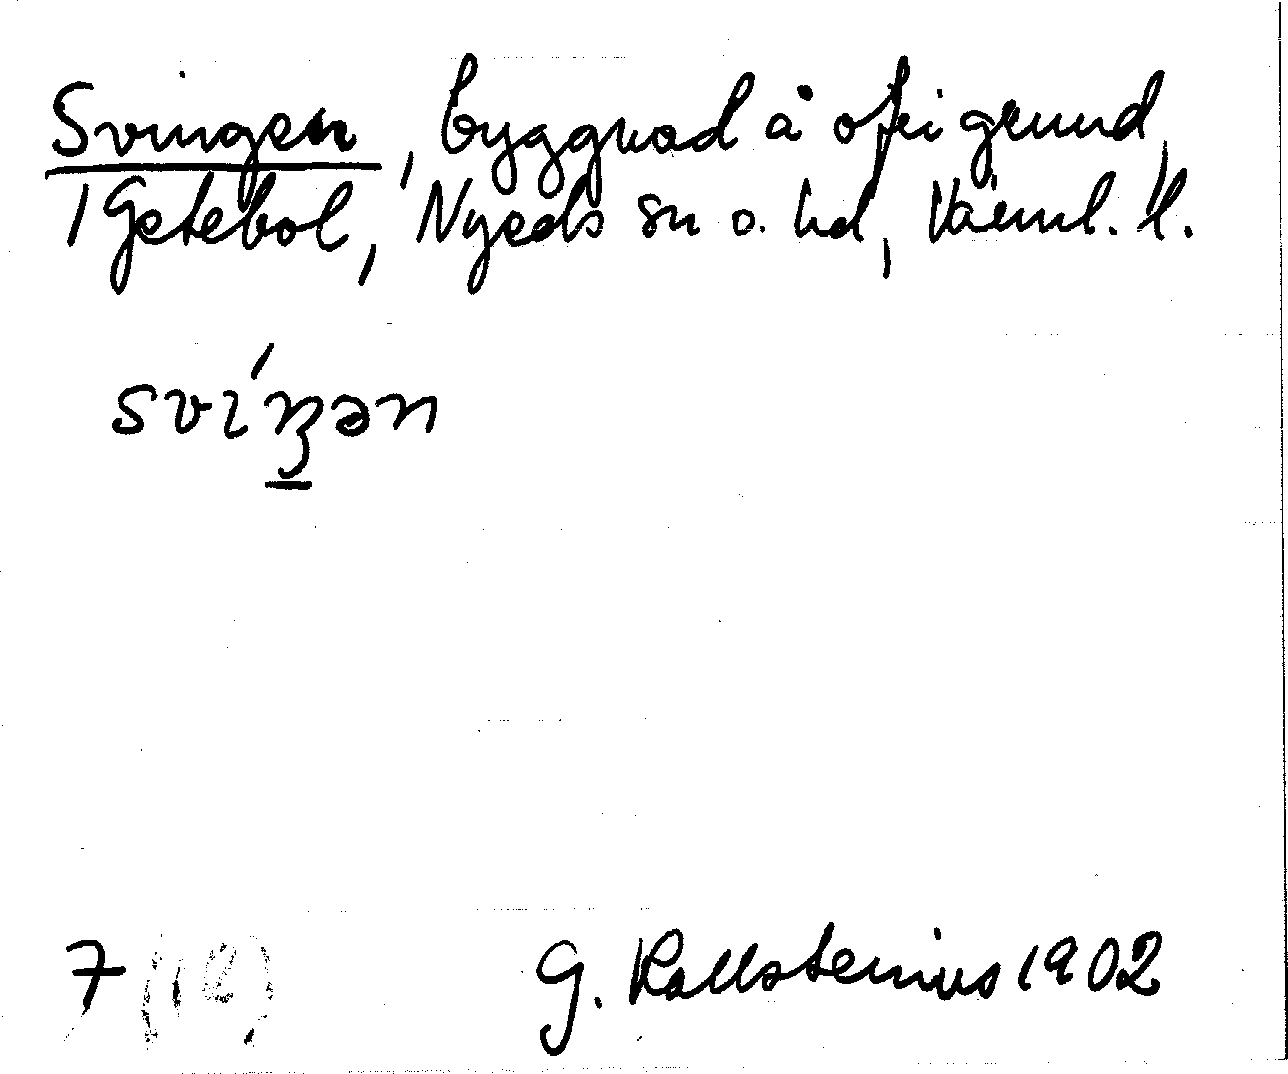 Svingen, byggnad å ofri grund,
1 Getebol, Nyeds sn o. hd, Värml. l.
svi´ŋən
7 (12)
G. Kallstenius 1902